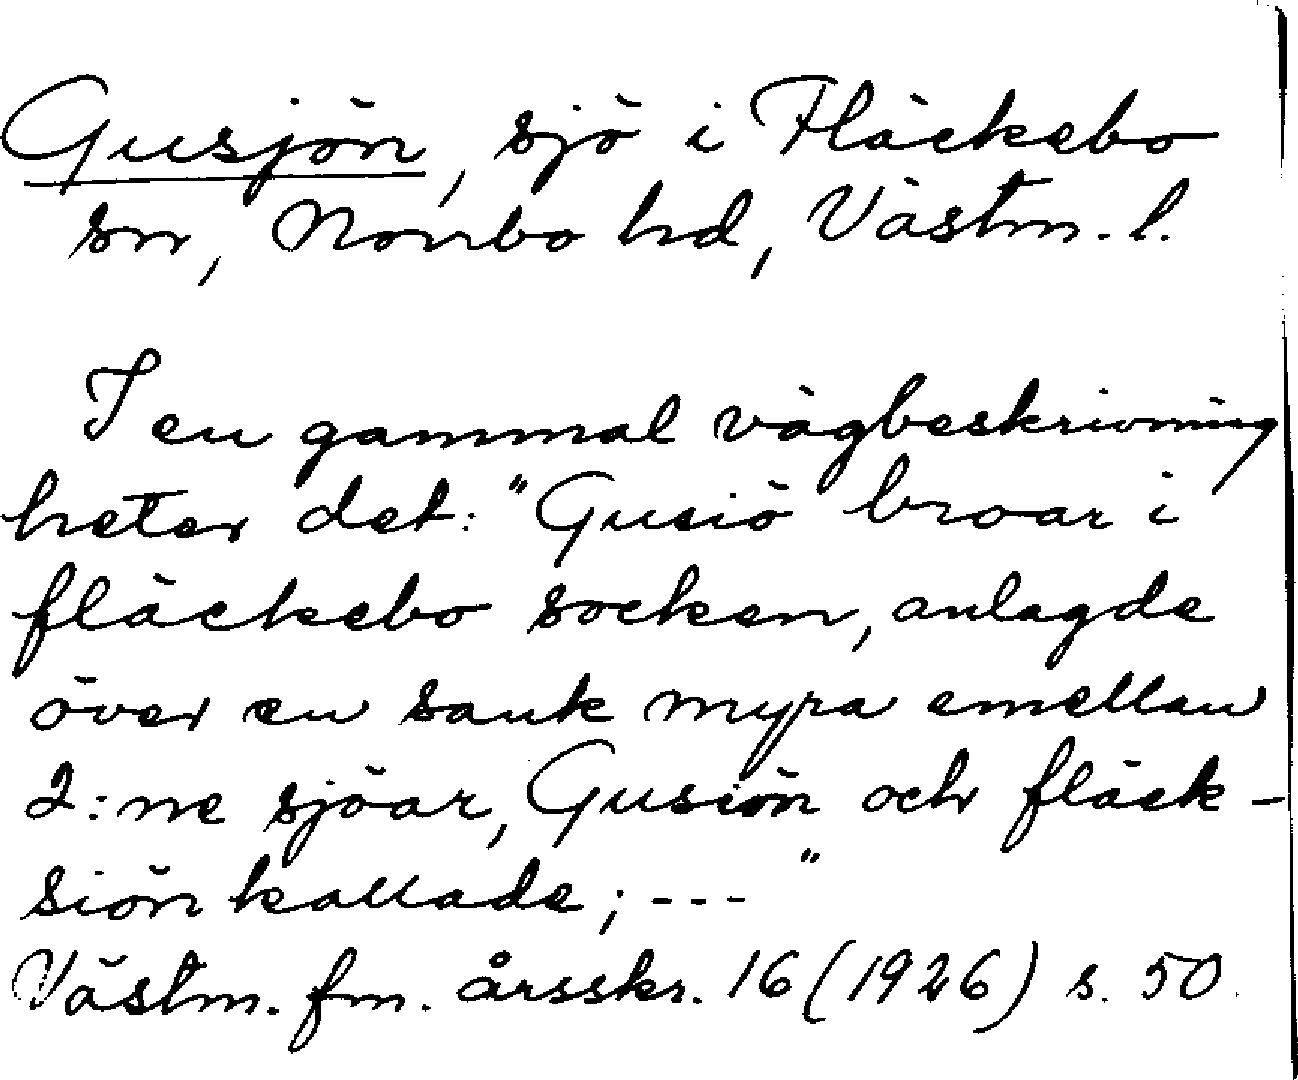 Gusjön, sjö i Fläckebo
sn, Norrbo hd, Västm. l.
I en gammal vägbeskrivning
heter det: "Gusiö broar i
fläckebo socken, anlagde
över en sank myra emellan
2:ne sjöar, Gusiön och fläck-
siön kallade; ---"
Västm. fm. årsskr. 16 (1926) s. 50.